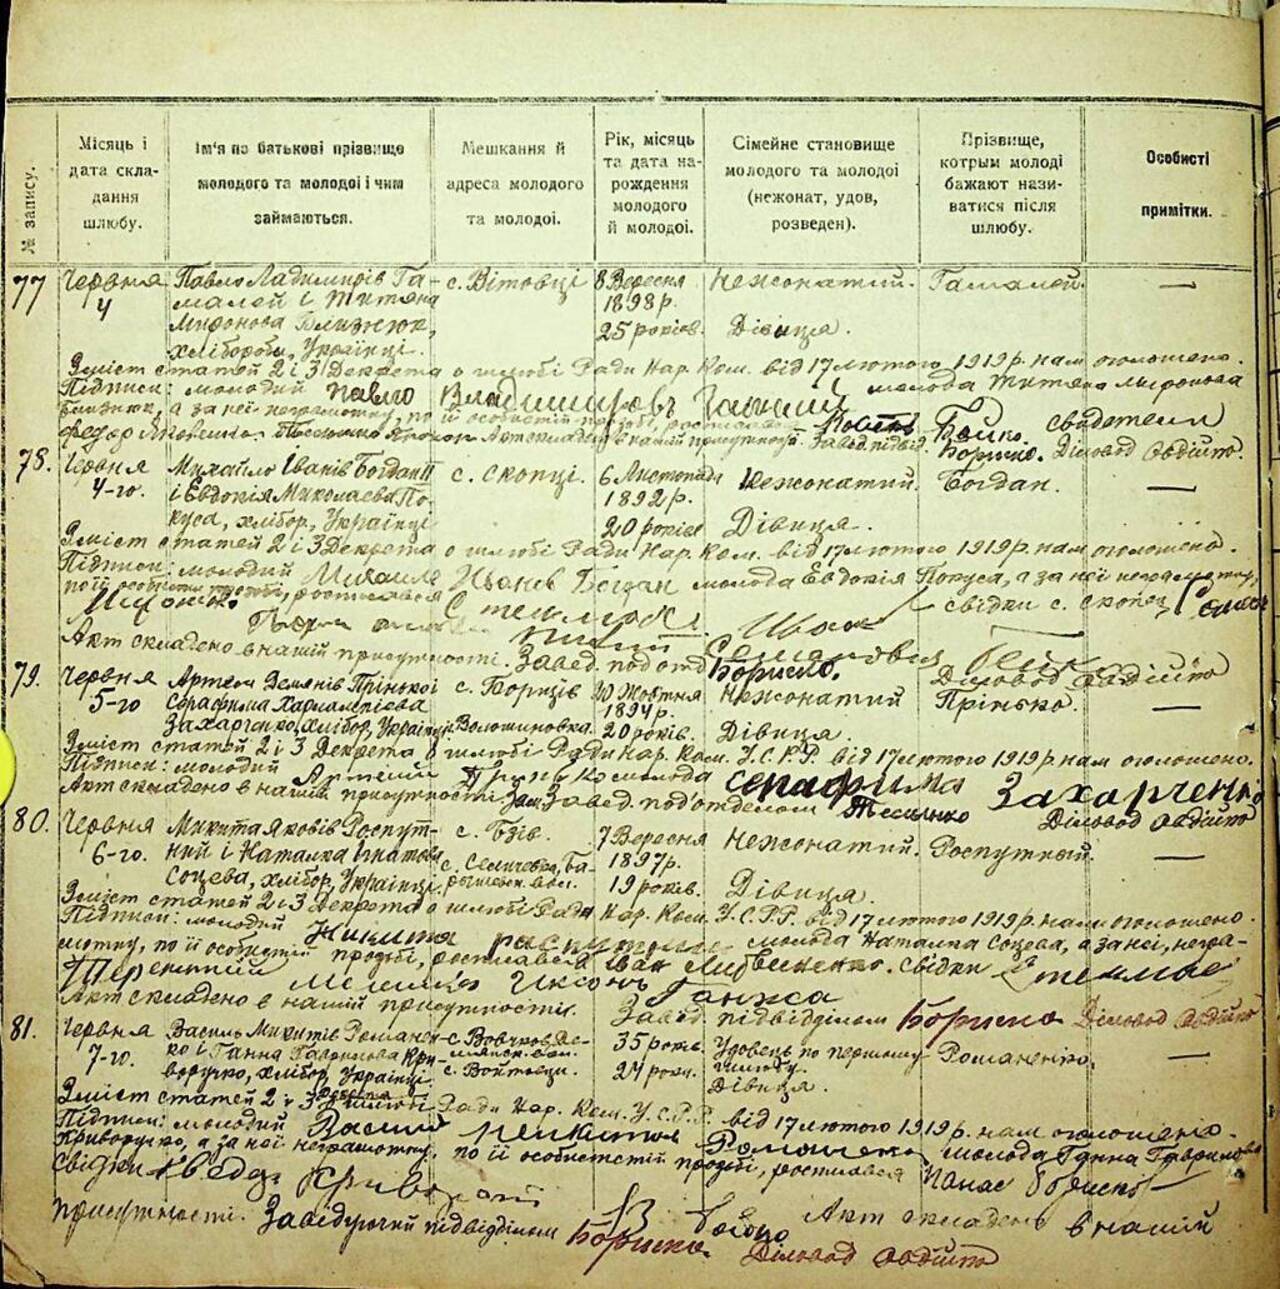 № запису.
Місяць і дата складання шлюбу.
Ім'я по батькові прізвище молодого та молодої і чим займаються.
Мешкання й адреса молодого та молодої.
Рік, місяць та дата народження молодого й молодої.
Сімейне становище молодого та молодої (нежонат, удов, розведен).
Прізвище, котрым молоді бажают називатися після шлюбу.
Особисті примітки.
77 Червня Павло Ладимирів Га- с. Вітовці 8 Вересня Нежонатий. Гамалей. —
4 малей і Титяна 1898 р.
Мифонова Близнюк, 25 років. Дівиця.
хлібороби, Українці.
Зміст статей 2 і 3 Декрета о шлюбі Ради Нар. Ком. від 17 лютого 1919 р. нам оголошено.
Підписи: молодий Павло Владимировъ молода Титяна Мифонова
Близнюк, а за неї неграмотну, по її особистій прозьбі, Бойко. свидетели
Федор Акт складено в нашій присутности. Завед. підвід. Борисно. Діловод Авдійко.
78. Червня Михайло Іванів Богдан с. Скопці. 6 Листопада Нежонатий. Богдан. —
4-го. і Евдокія Миколаева По- 1892 р.
куса, хлібор, Українці 20 років Дівиця.
Зміст статей 2 і 3 Декрета о шлюбі Ради Нар. Ком. від 17 лютого 1919 р. нам оголошено.
Підписи: молодий Михаиле Иванів Богдан молода Евдокія Покуса, а за неї неграмотну,
по її особистій прозьбі, росписався свідки с. Скопец
Акт складено в нашій присутности. Завед. подотд Борисно. Діловод Авдійко
79. Червня Артем Демянів Прінькоі с. Борищів 20 Жовтня Нежонатий Прінько. —
5-го Серафима Харлампіева 1894 р.
Захарченко, хлібор, Українці. Волошиновка. 20 років. Дівиця.
Зміст статей 2 і 3 Декрета о шлюбі Ради Нар. Ком. У.С.Р.Р. від 17 лютого 1919 р нам оголошено.
Підписи: молодий Артемий Принько молода Серафима Захарченко
Акт складено в нашій присутности. Завед. под'отделом Тесленко Діловод Авдійко
80. Червня Микита Яковів Роспут- с. Бзів. 7 Вересня Нежонатий. Роспутный. —
6-го. ний і Наталка Ігнатова с. Селичевка, Ба- 1897 р.
Соцева, хлібор, Українці. ришевск. вол. 19 років. Дівиця.
Зміст статей 2 і 3 Декрета о шлюбі Ради Нар. Ком. У.С.Р.Р. від 17 лютого 1919 р. нам оголошено.
Підписи: молодий Никита молода Наталка Соцева, а за неї, негра-
мотну, по її особистій прозьбі, росписався Іван Литвиненко. Свідки
Терентий Ганжа
Акт складено в нашій присутности. Завед. підвідділом Борисно Діловод Авдійко
81. Червня Василь Микитів Романен- с. Вовчков, 35 років. Удовець по першому Романенко. —
7-го. ко і Ганна Гаврилова Кри- с. Войтовци. 24 роки. шлюбу.
воручко, хлібор, Українці. Дівиця.
Зміст статей 2 і 3 Декрета о шлюбі Ради Нар. Ком. У.С.Р.Р. від 17 лютого 1919 р. нам оголошено.
Підписи: молодий Василь Романенко молода Ганна Гаврилова
Криворучко, а за неї неграмотну, по її особистстій прозьбі, росписався Панас
Свідки Акт складено в нашій
присутности. Завідуючий підвідділом Борисно. Діловод Авдійко